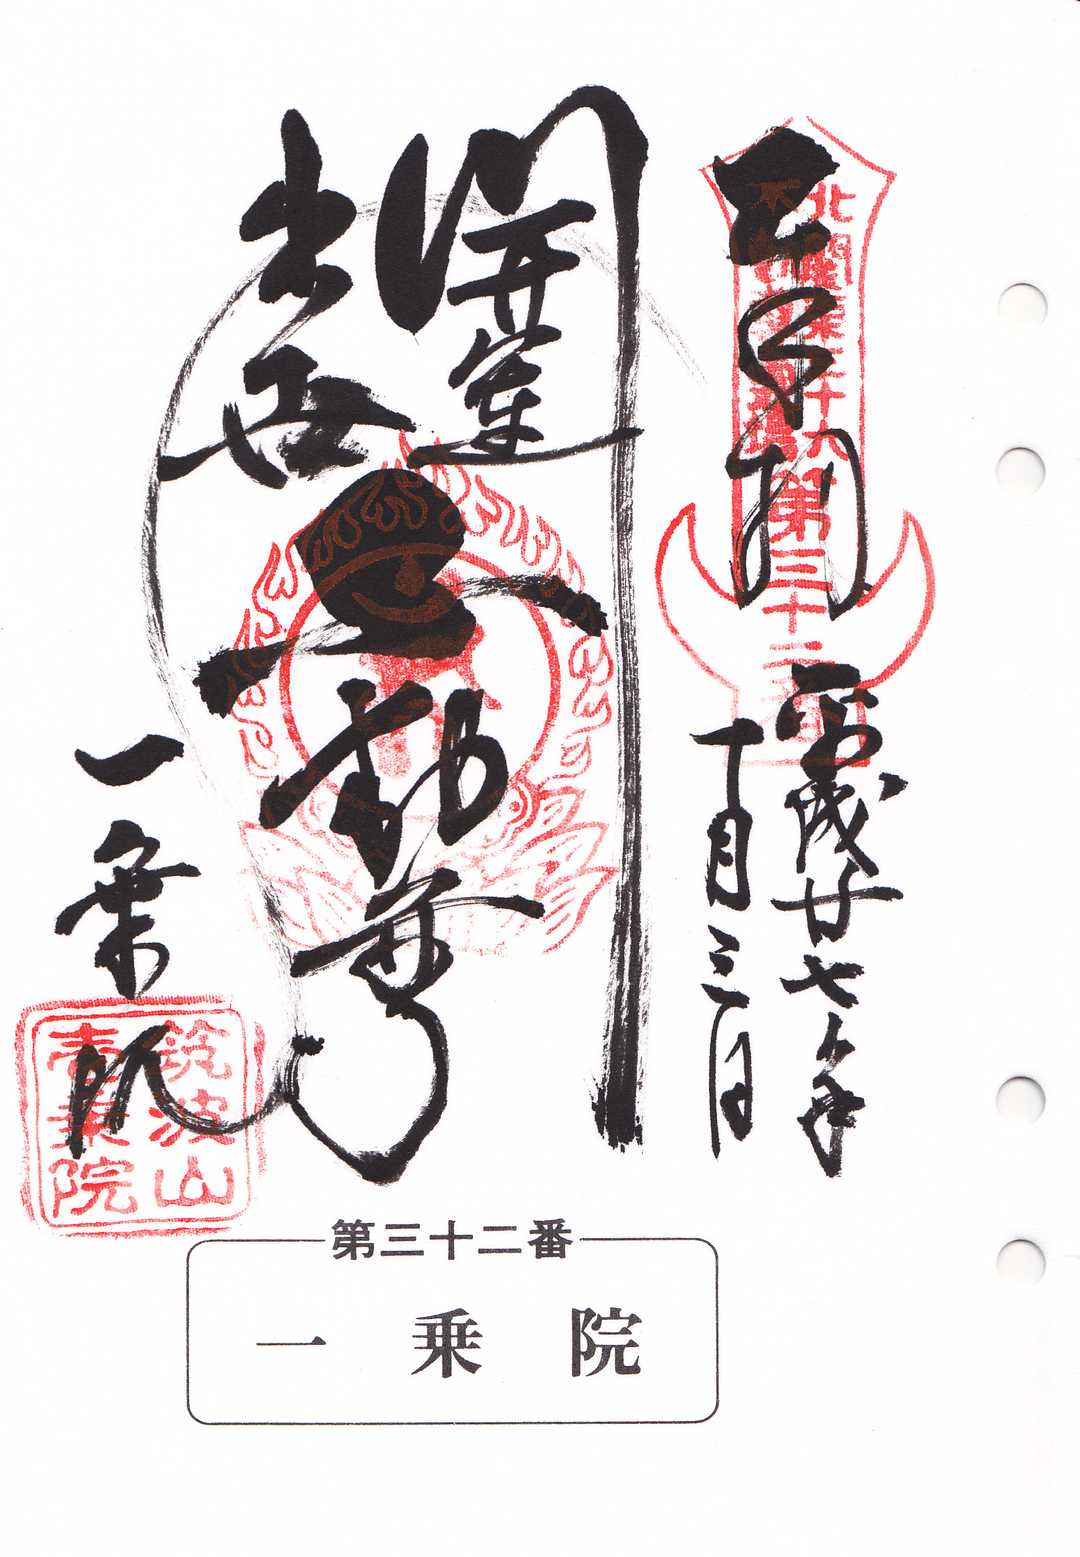 奉拝
北関東三十六
不動尊霊場
第三十二番
平成廿七年
十月三日
開運
出世
不動尊
一乗院
筑波山
壱乗院
第三十二番
一乗院